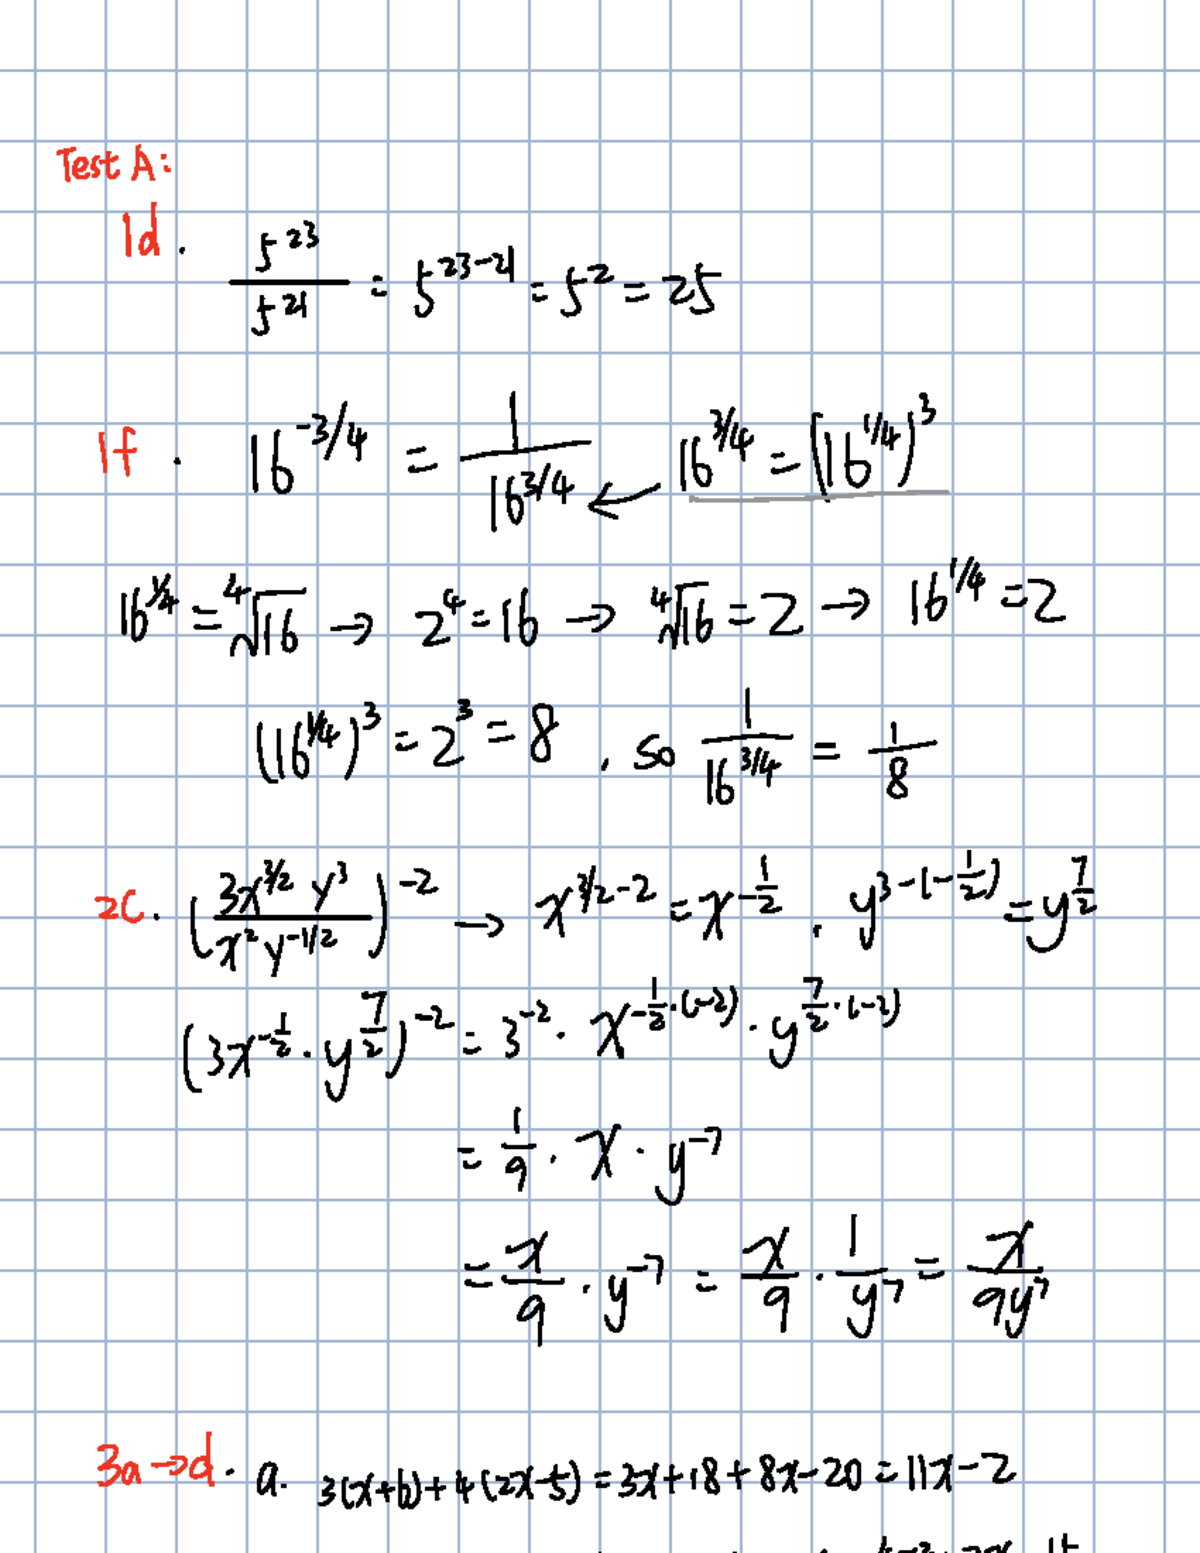 Test A:
1d. 5^23/5^21 = 5^(23-21) = 5^2 = 25
1f. 16^(-3/4) = 1/16^(3/4) ← 16^(3/4) = (16^(1/4))^3
16^(1/4) = ⁴√16 → 2^4 = 16 → ⁴√16 = 2 → 16^(1/4) = 2
(16^(1/4))^3 = 2^3 = 8, so 1/16^(3/4) = 1/8
2c. (3x^(3/2) y^3 / x^2 y^(-1/2))^(-2) → x^(3/2-2) = x^(-1/2), y^(3-(-1/2)) = y^(7/2)
(3x^(-1/2) · y^(7/2))^(-2) = 3^(-2) · x^(-1/2·(-2)) · y^(7/2·(-2))
= 1/9 · x · y^(-7)
= x/9 · y^(-7) = x/9 · 1/y^7 = x/9y^7
3a→d. a. 3(x+6)+4(2x-5) = 3x+18+8x-20 = 11x-2